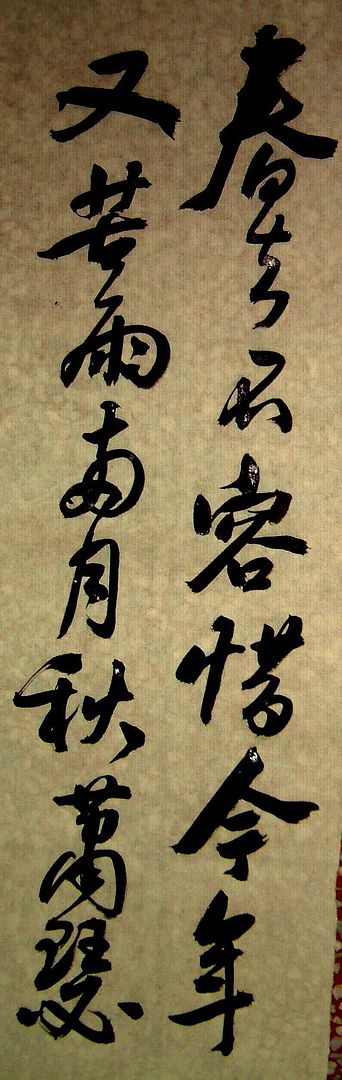 春去不容惜今年
又苦雨两月秋蕭瑟